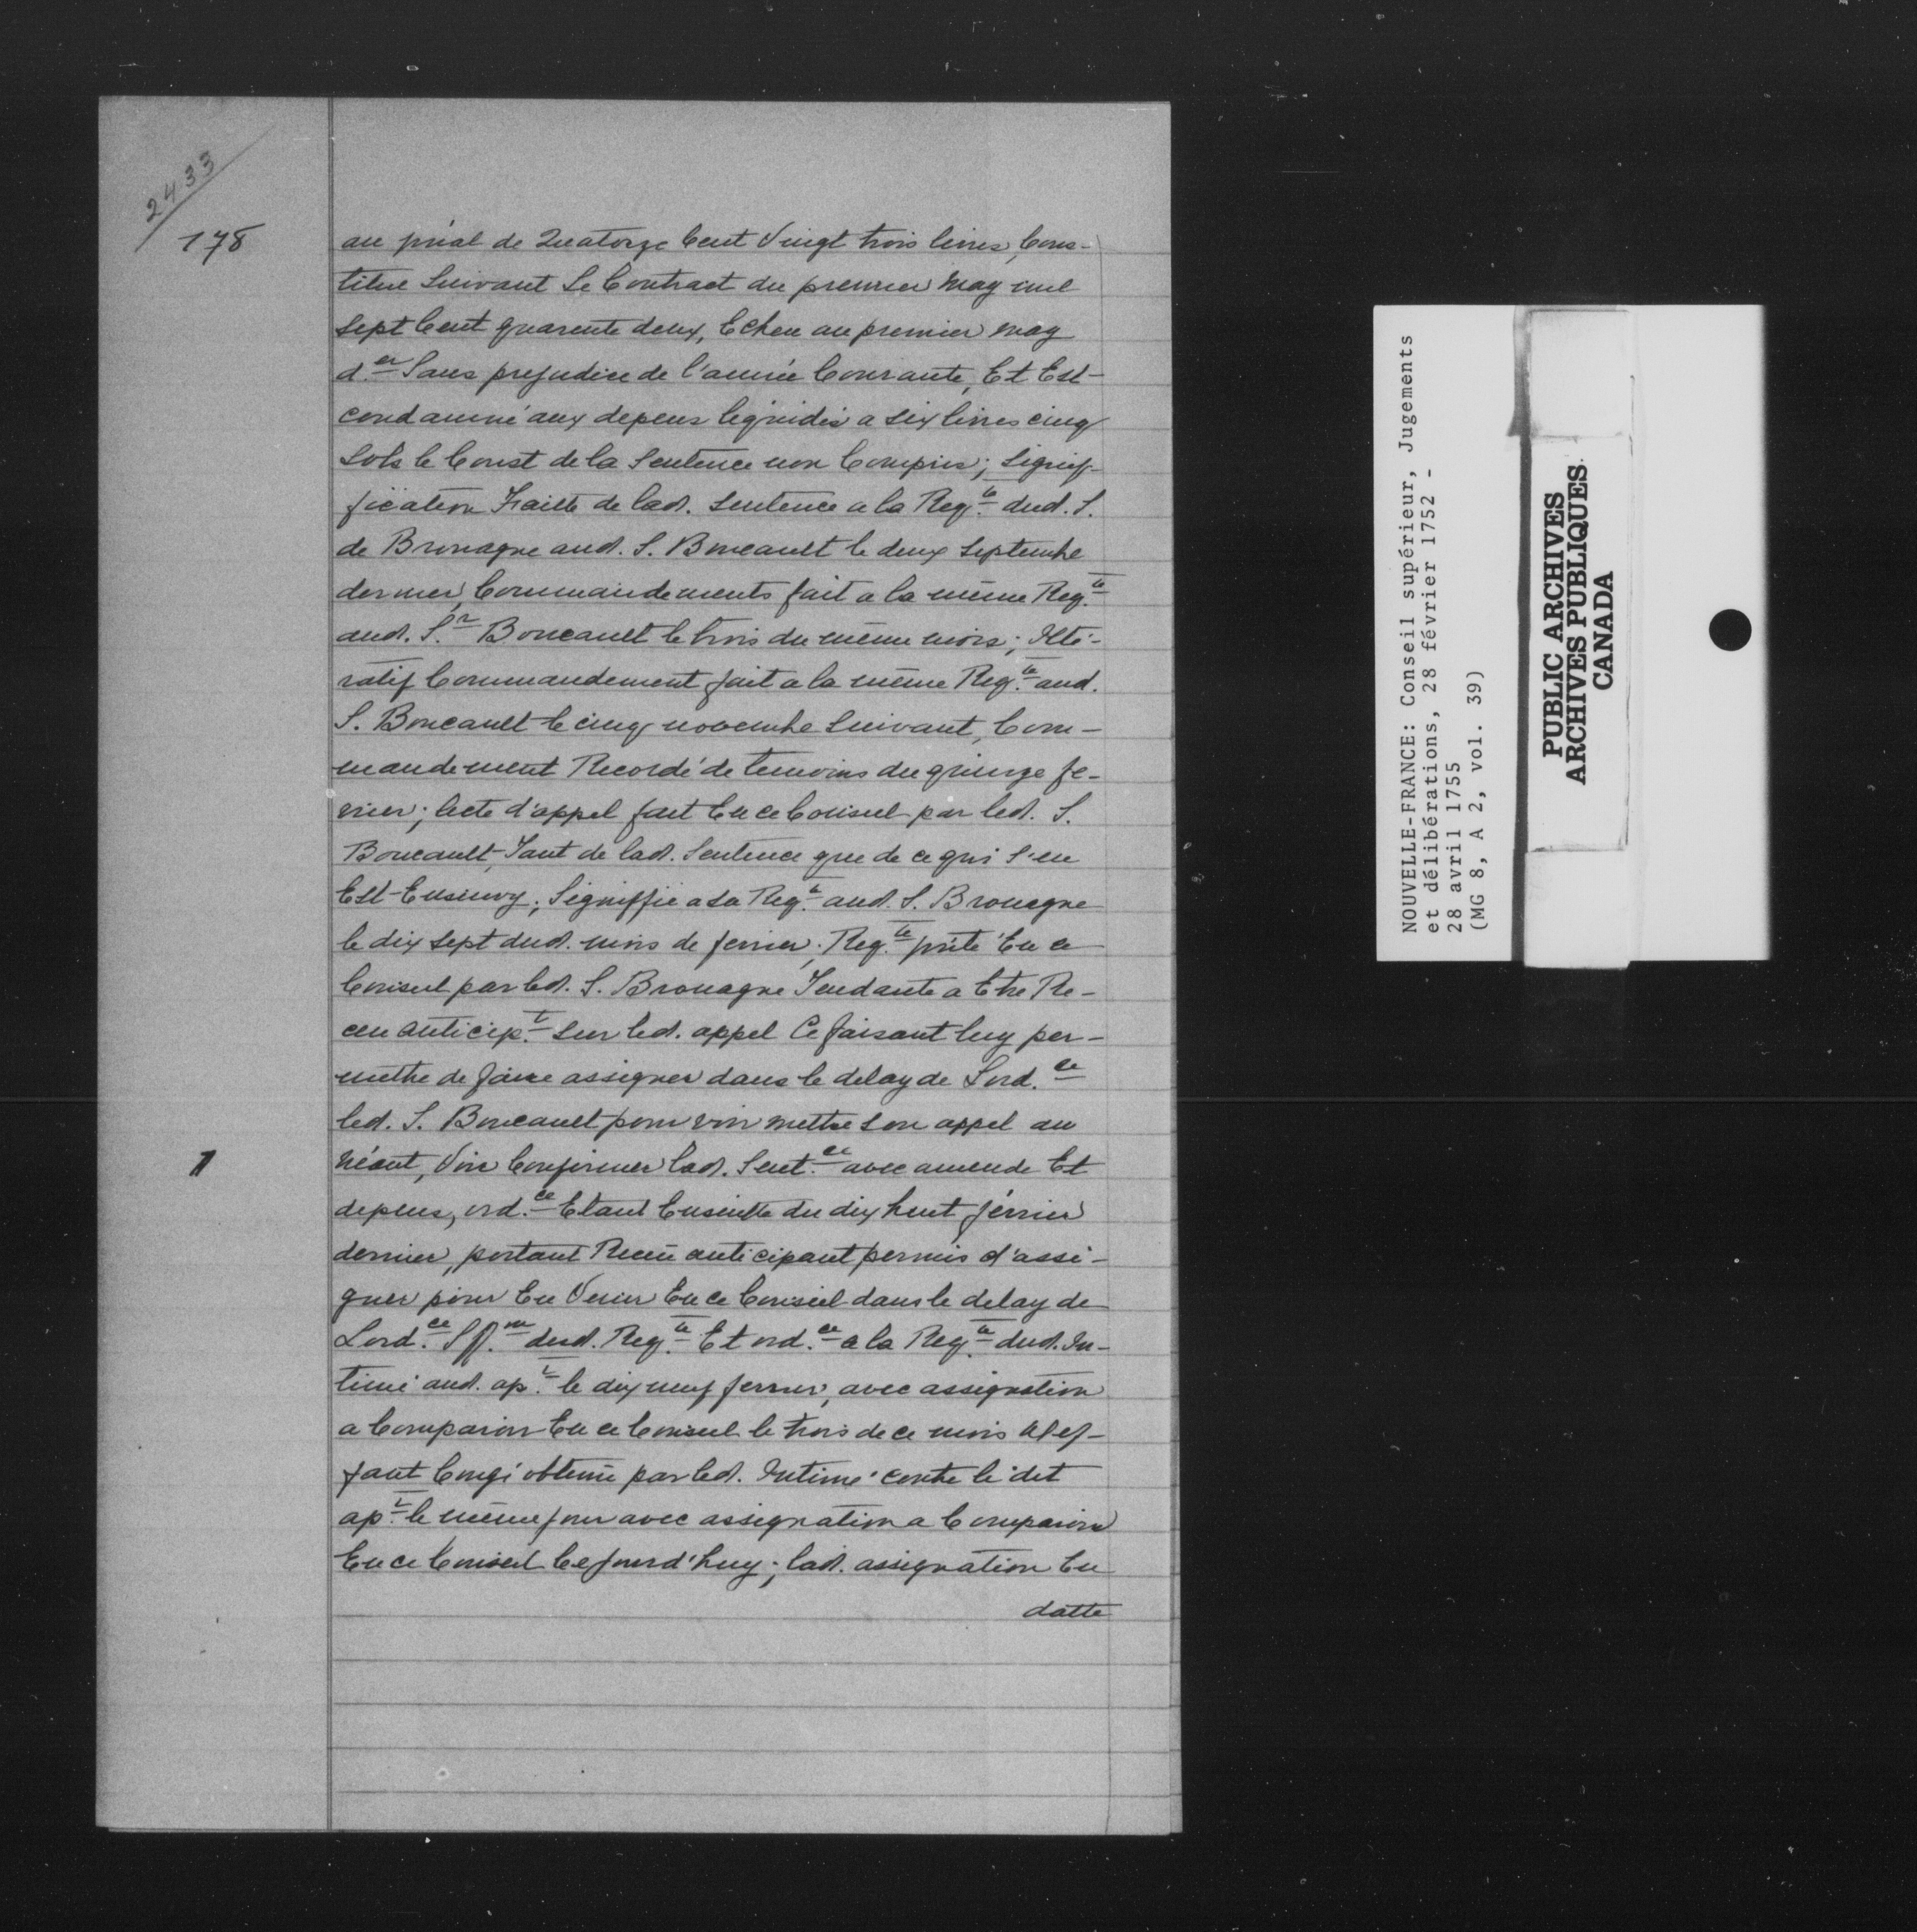 2433
178
au pñal de Quatorze Cent Vingt trois livres, Cons-
titué Suivant Le Contract du premier May mil
Sept Cent quarente deux, Echeu au premier may
d.er Sans prejudice de l'année Courante, Et Est
condamné aux depens liquidés a six livres cinq
Sols le Coust de la Sentence non Compris; Signif-
fication Faitte de lad. Sentence a la Reqte dud. S.
de Brouague aud. S. Boucault le deux Septembre
dernier, Commandements fait a la même Reqte
aud. S.r Boucault le trois du même mois; Ité-
ratif Commandement fait a la même Reqte aud.
S. Boucault le cinq novembre Suivant, Com-
mandement Recordé de temoins du quinze fe-
vrier; acte d'appel fait En ce Conseil par led. S.
Boucault, Tant de lad. Sentence que de ce qui S'en
Est Ensuivy; Signiffié a Sa Reqte aud. S. Brouague
le dix sept dud. mois de fevrier; Reqte pñte En ce
Conseil par led. S. Brouague Tendante a Etre Re-
ceu anticip.t Sur led. appel Ce faisant luy per-
mettre de faire assigner dans le delay de Lord.ce
led. S. Boucault pour voir mettre Son appel au
Néant, Voir Confirmer lad. Sent.ce avec amende Et
1
depens, ord.ce Etant Ensuitte du dix huit févrief
dernier, portant Receu anticipant permis d'assi-
gner pour En Venir En ce Conseil dans le delay de
Lord.ce Sff.on dud. Reqte Et ord.ce a la Reqte dud. In-
timé aud. ap.t le dix neuf fevrier, avec assignation
a Comparoir En ce Conseil le trois de ce mois
faut Congé obtenu par led. Intimé contre le dit
ap.t le même jour avec assignation a Comparoir
En ce Conseil Cejourd'huy; lad. assignation En
datte
NOUVELLE-FRANCE: Conseil supérieur, Jugements
et délibérations, 28 février 1752 -
28 avril 1755
(MG 8, A 2, vol. 39)
PUBLIC ARCHIVES
ARCHIVES PUBLIQUES
CANADA